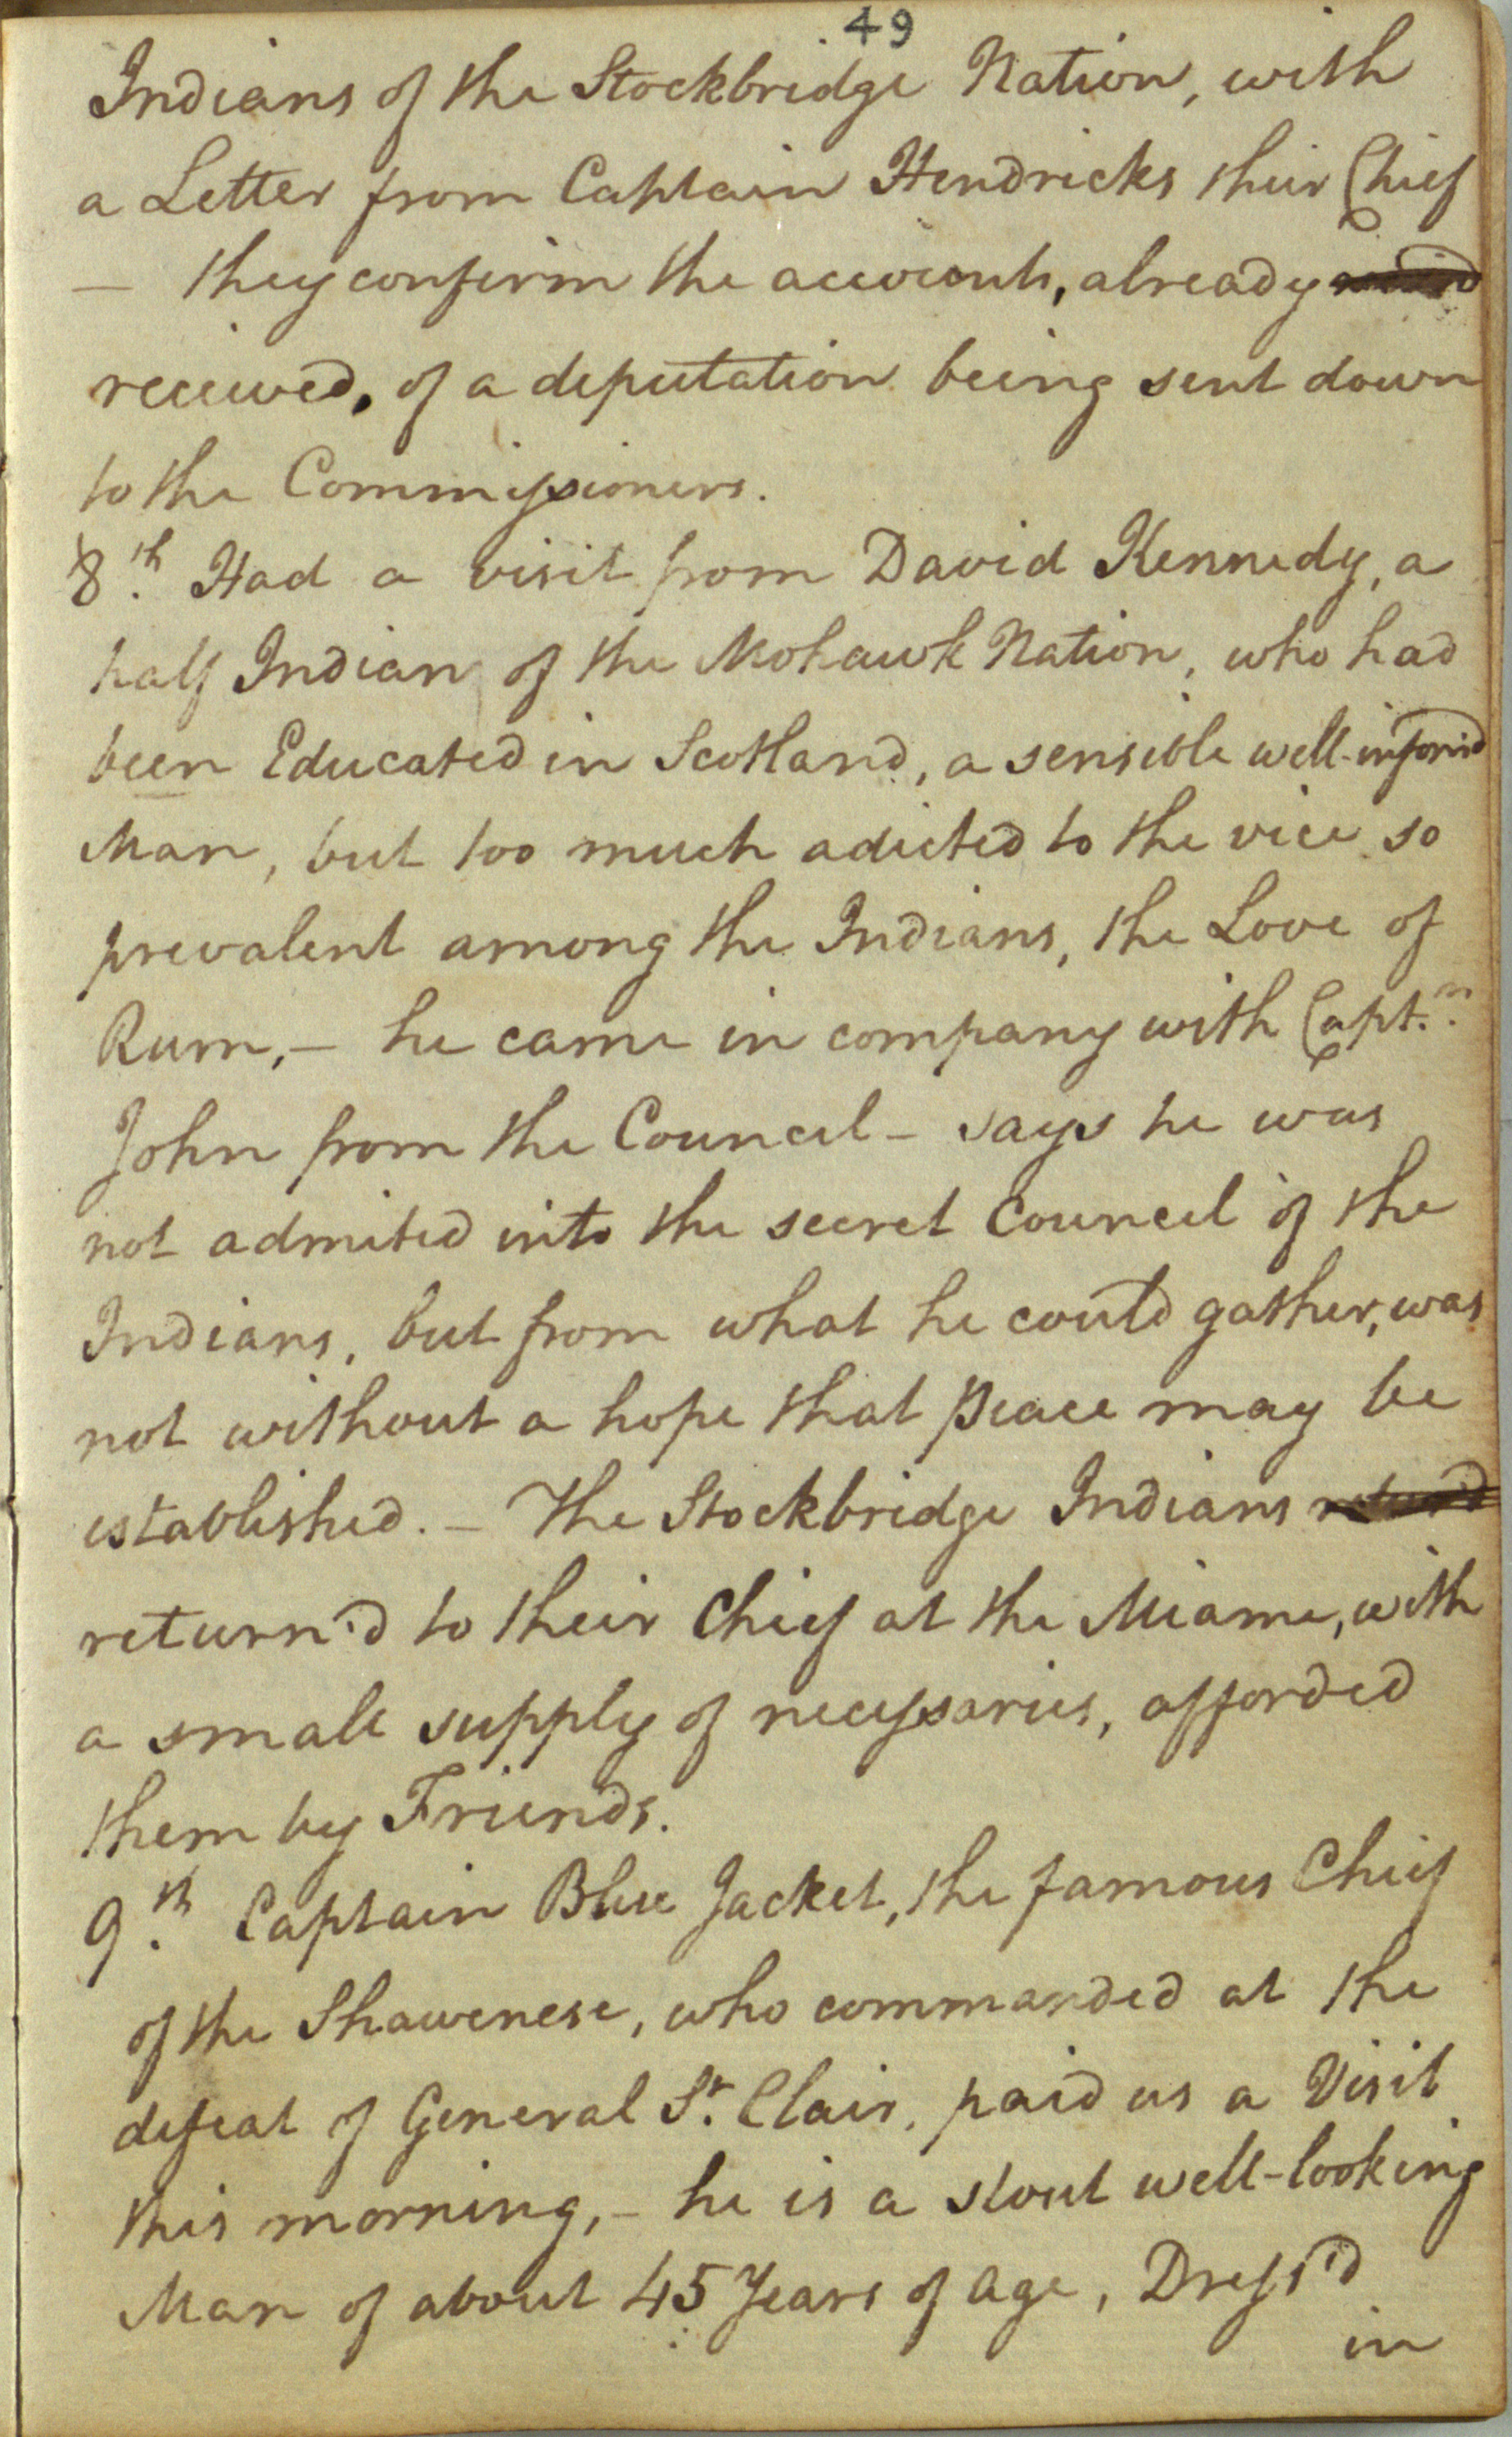 49
Indians of the Stockbridge Nation, with
a Letter from Captain Hendricks their Chief
— they confirm the accounts, already
received, of a deputation being sent down
to the Commissioners.
8th. Had a visit from David Kennedy, a
half Indian of the Mohawk Nation, who had
been Educated in Scotland, a sensible well-inform'd
Man, but too much adicted to the vice so
prevalent among the Indians, the Love of
Rum,— he came in company with Captn.
John from the Council — says he was
not admited into the secret Council of the
Indians, but from what he could gather, was
not without a hope that peace may be
established. — The Stockbridge Indians return'd
return'd to their Chief at the Miame, with
a small supply of necessaries, afforded
them by Friends.
9th. Captain Blue Jacket, the famous Chief
of the Shawenese, who commanded at the
defeat of General St. Clair, paid us a Visit
this morning,— he is a stout well-looking
Man of about 45 Years of age, Dress'd
in